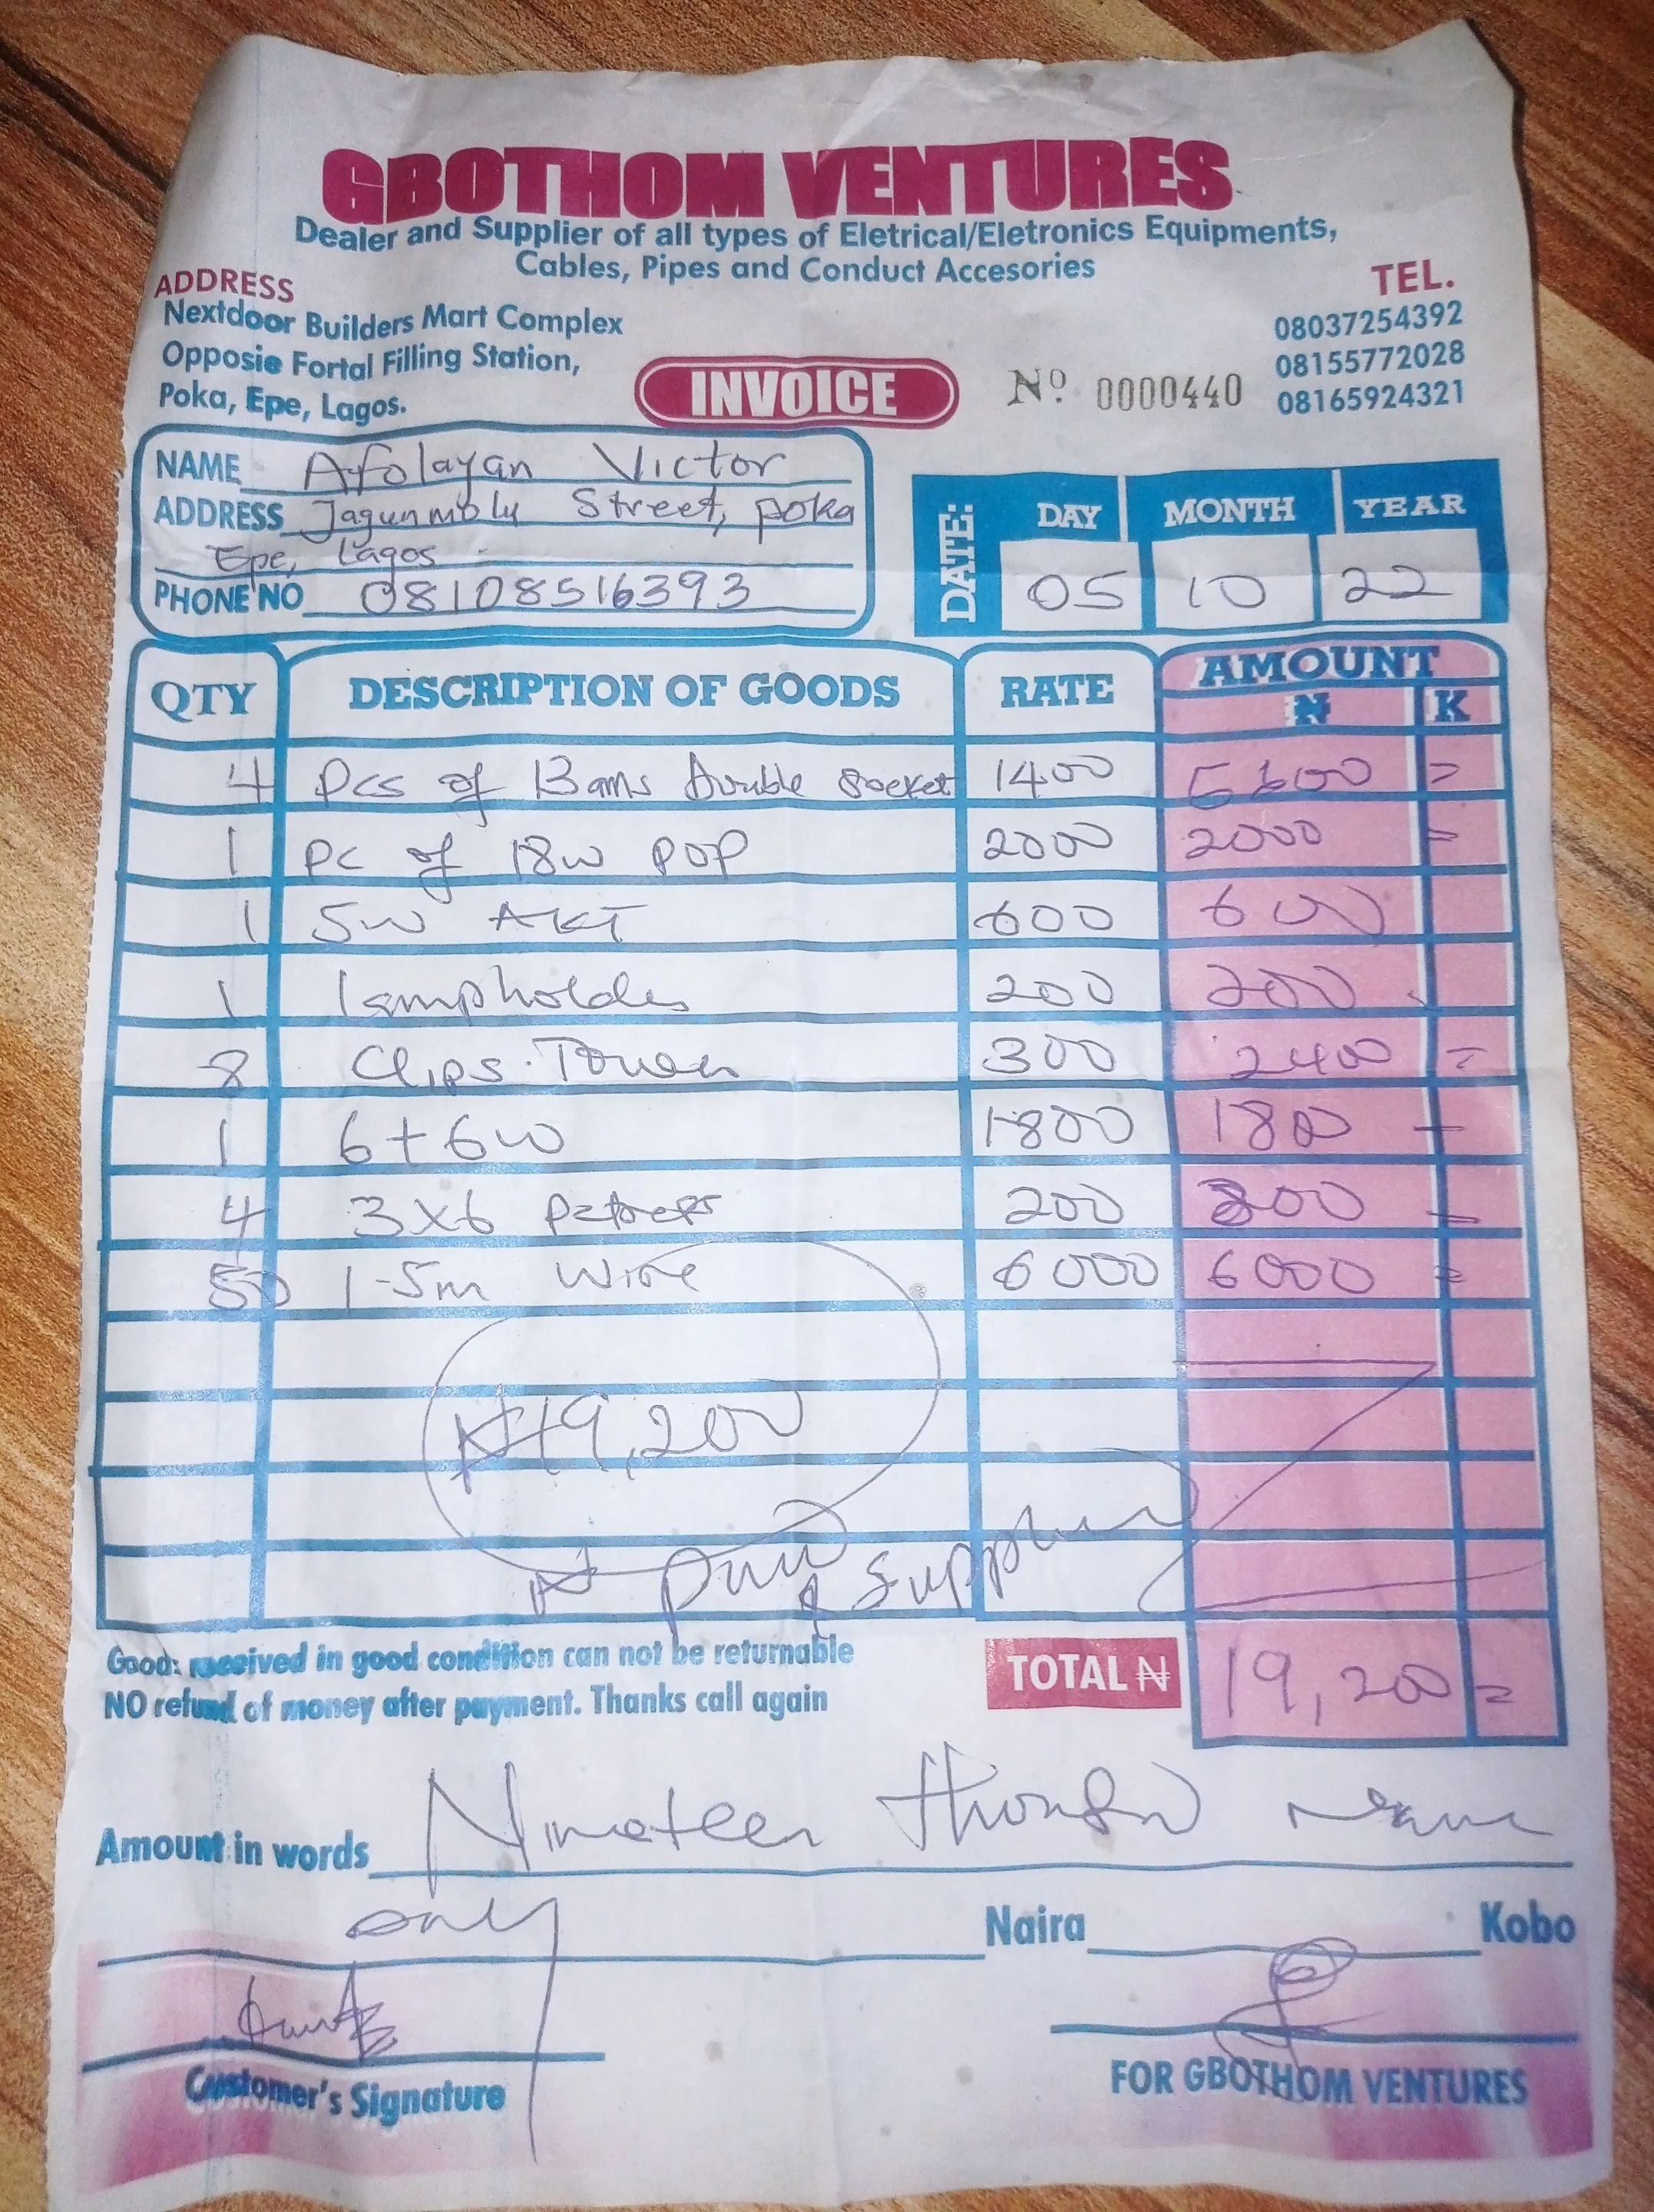 GBOTHOM VENTURES
Dealer and Supplier of all types of Eletrical/Eletronics Equipments,
Cables, Pipes and Conduct Accesories
ADDRESS
Nextdoor Builders Mart Complex
Opposie Fortal Filling Station,
Poka, Epe, Lagos.
TEL.
08037254392
08155772028
08165924321
INVOICE
Nº 0000440
NAME Afolayan Victor
ADDRESS Jagunmolu Street, poka
Epe, Lagos
PHONE NO 08108516393
DATE: DAY MONTH YEAR
05 10 22
QTY DESCRIPTION OF GOODS RATE AMOUNT
₦ K
4 Pcs of 13 ams Double Socket 1400 5600 =
1 pc of 18w POP 2000 2000 =
1 5w AKT 600 600
1 lampholder 200 200
8 Clips 300 2400 =
1 6+6w 1800 1800 -
4 3x6 200 800 =
50 1-5m Wire 6000 6000 =
₦19,200
paid & Supplied
Goods received in good condition can not be returnable
NO refund of money after payment. Thanks call again
TOTAL ₦ 19,200 =
Amount in words Nineteen thousand
only Naira Kobo
Customer's Signature
FOR GBOTHOM VENTURES